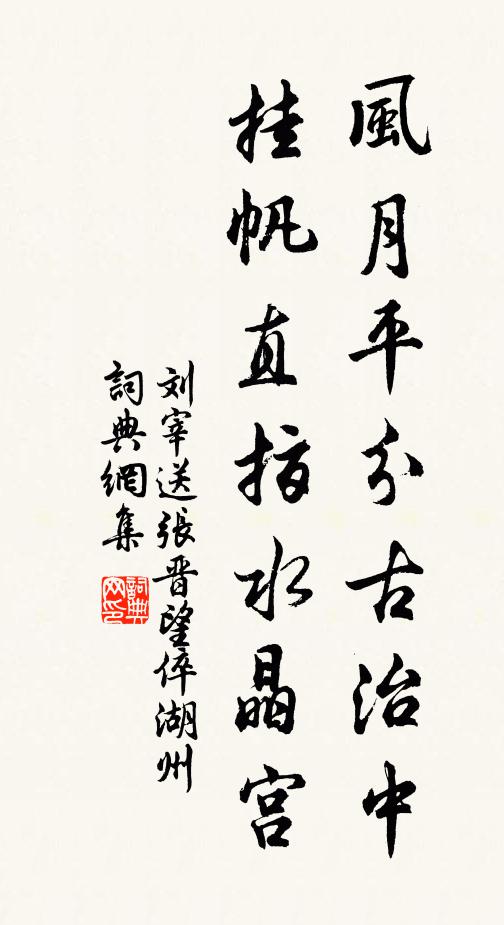 風月平分古治中
挂帆直指水晶宫
刘宰送張晋望倅湖州
詞典網集
詞典網印